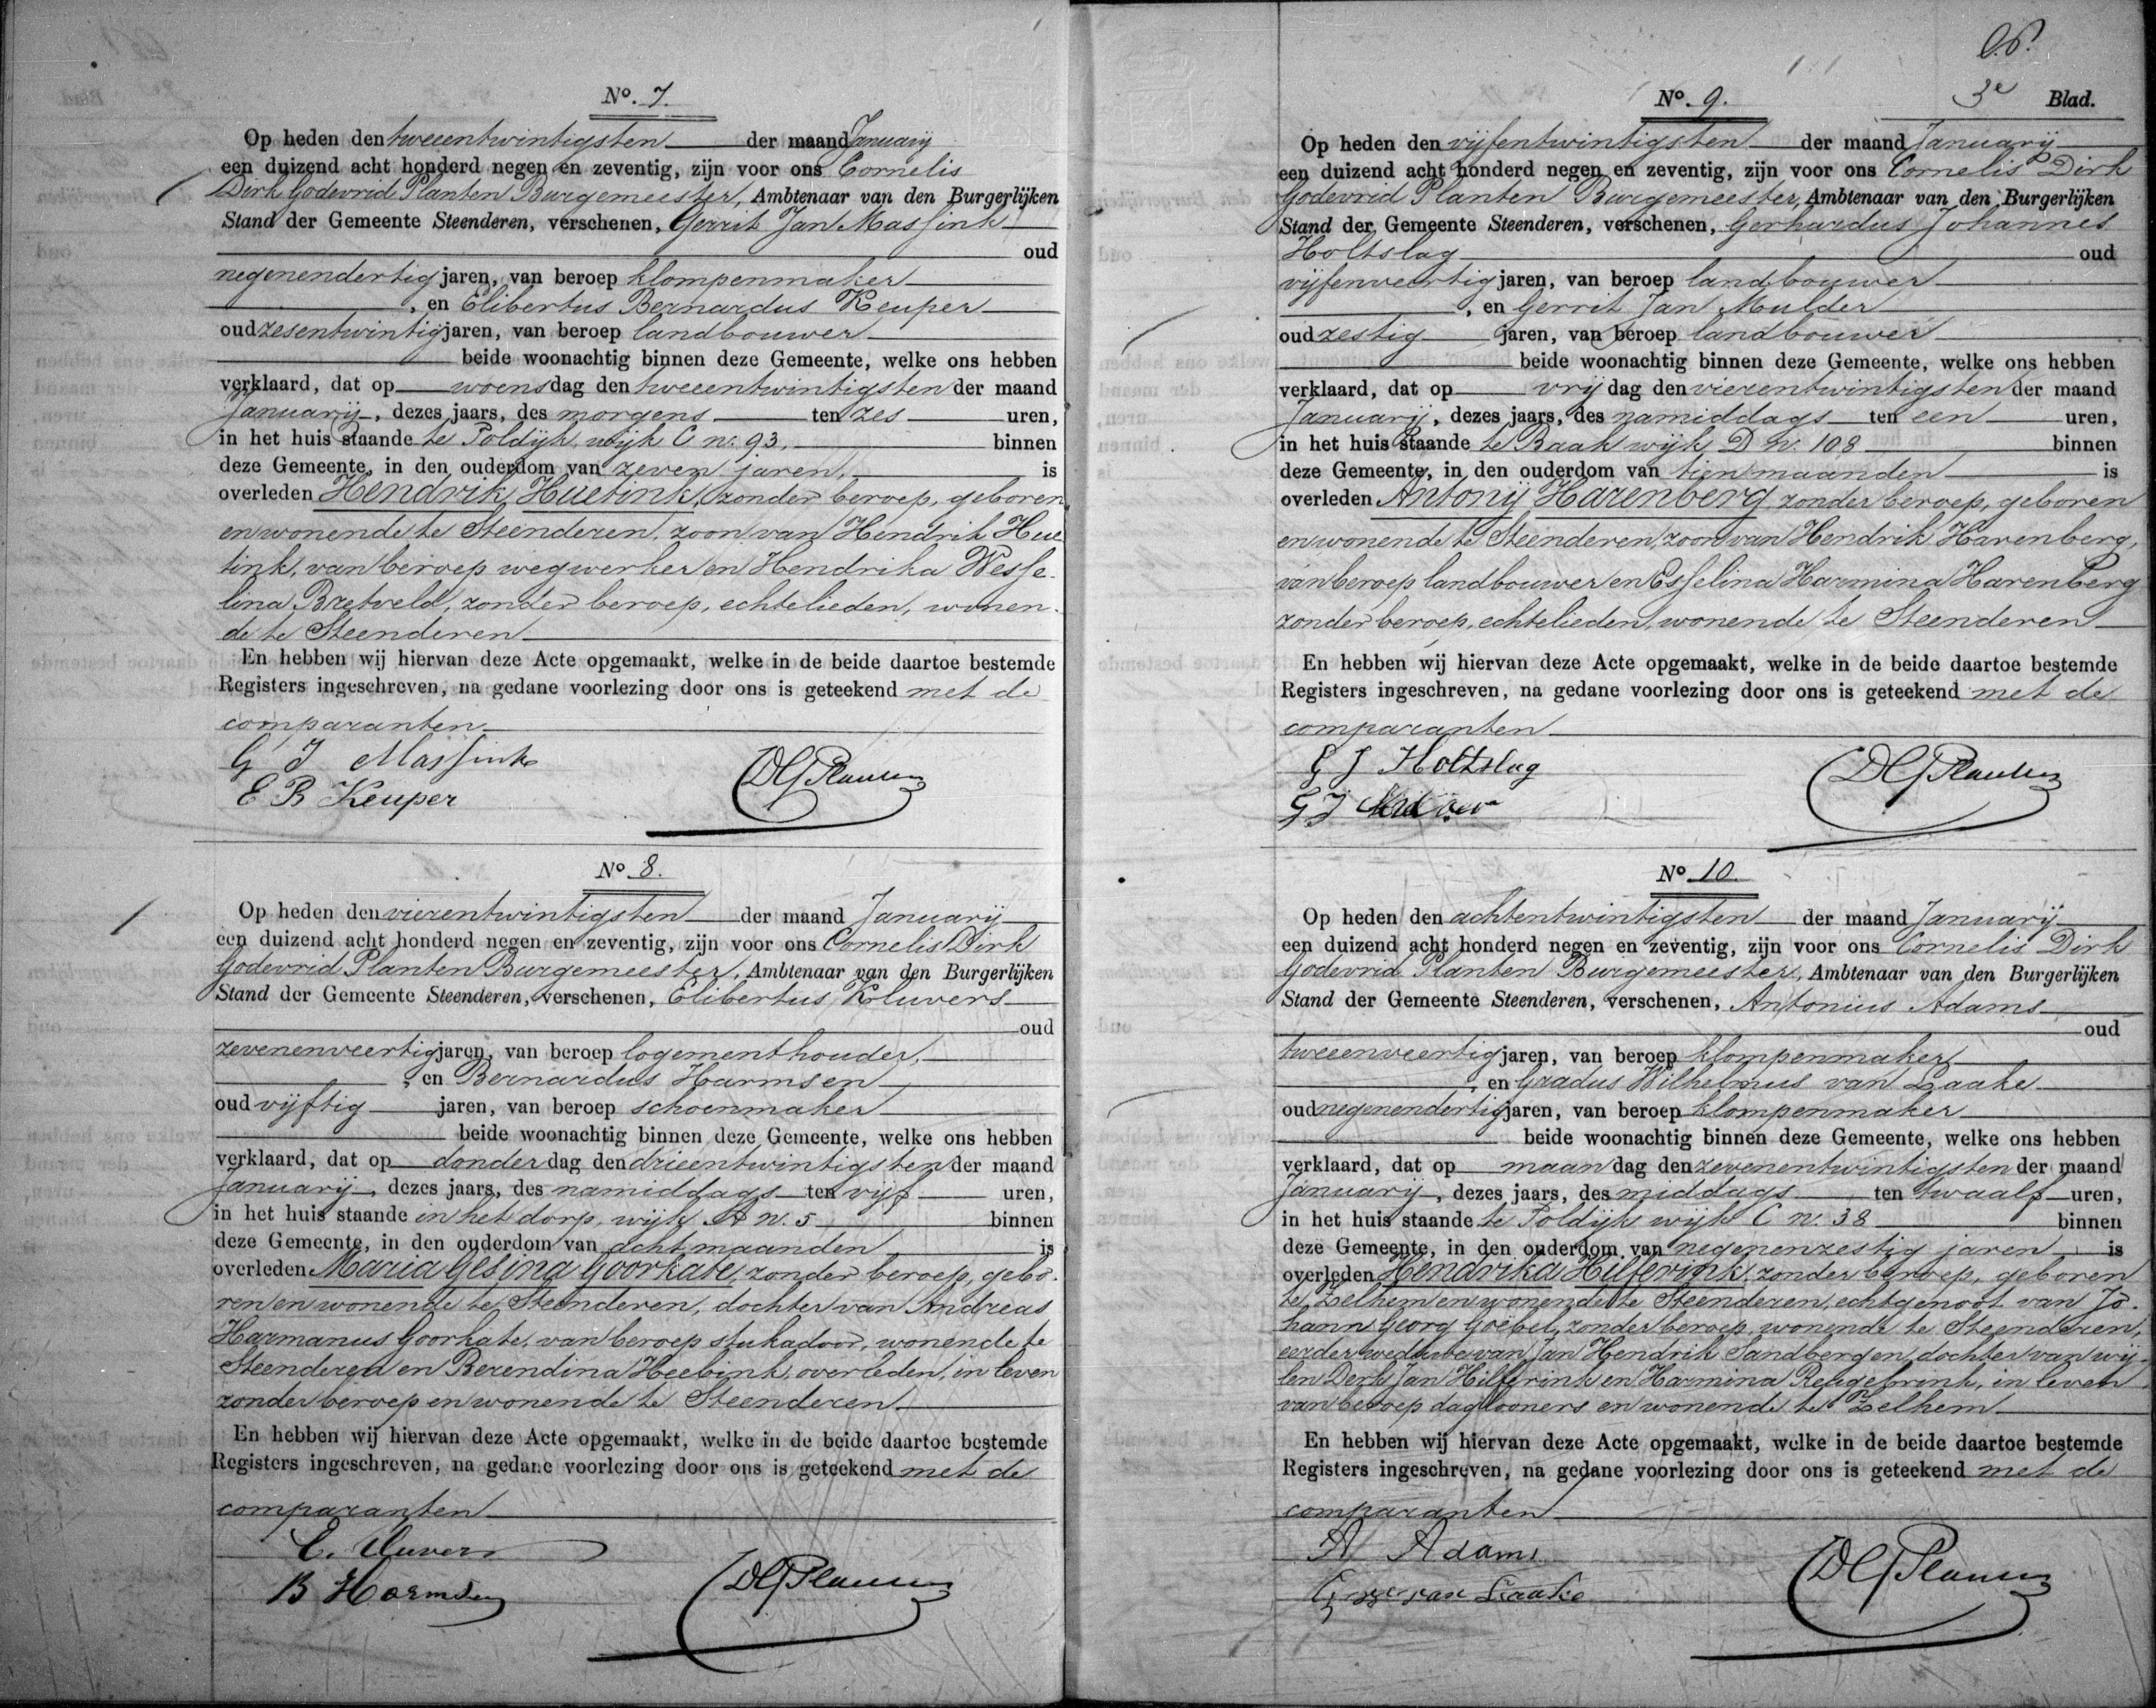 No. 7.
Op heden den tweeentwintigsten der maand Januarij
een duizend acht honderd negen en zeventig, zijn voor ons Cornelis
Dirk Godevrid Planten Burgemeester, Ambtenaar van den Burgerlijken
Stand der Gemeente Steenderen, verschenen, Gerrit Jan Massink
oud
negenendertig jaren, van beroep klompenmaker
, en Elibertus Bernardus Keuper
oud zesentwintig jaren, van beroep landbouwer
beide woonachtig binnen deze Gemeente, welke ons hebben
verklaard, dat op woensdag den tweeentwintigsten der maand
Januarij, dezes jaars, des morgens ten zes uren,
in het huis staande te Toldijk, wijk C nr. 93, binnen
deze Gemeente, in den ouderdom van zeven jaren, is
overleden Hendrik Huetink, zonder beroep, geboren
en wonende te Steenderen, zoon van Hendrik Hue
tink, van beroep wegwerker en Hendrika Wesse-
lina Bretveld, zonder beroep, echtelieden, wonen-
de te Steenderen
En hebben wij hiervan deze Acte opgemaakt, welke in de beide daartoe bestemde
Registers ingeschreven, na gedane voorlezing door ons is geteekend met de
comparanten
G J Massink
E B Keuper
CDGPlanten
No 8.
Op heden den vierentwintigsten der maand Januarij
een duizend acht honderd negen en zeventig, zijn voor ons Cornelis Dirk
Godevrid Planten Burgemeester, Ambtenaar van den Burgerlijken
Stand der Gemeente Steenderen, verschenen, Elibertus Kluvers
oud
zevenenveertig jaren, van beroep logementhouder,
, en Bernardus Harmsen
oud vijftig jaren, van beroep schoenmaker
beide woonachtig binnen deze Gemeente, welke ons hebben
verklaard, dat op donderdag den drieentwintigsten der maand
Januarij, dezes jaars, des namiddags ten vijf uren,
in het huis staande in het dorp, wijk A nr. 5 binnen
deze Gemeente, in den ouderdom van acht maanden is
overleden Maria Gesina Goorkate, zonder beroep, gebo-
ren en wonende te Steenderen, dochter van Andreas
Harmanus Goorkate, van beroep stukadoor, wonende te
Steenderen en Berendina Heebink, overleden, in leven
zonder beroep en wonende te Steenderen
En hebben wij hiervan deze Acte opgemaakt, welke in de beide daartoe bestemde
Registers ingeschreven, na gedane voorlezing door ons is geteekend met de
comparanten
B Harmsen
CDGPlanten
3e Blad.
No. 9.
Op heden den vijfentwintigsten der maand Januarij
een duizend acht honderd negen en zeventig, zijn voor ons Cornelis Dirk
Godevrid Planten Burgemeester, Ambtenaar van den Burgerlijken
Stand der Gemeente Steenderen, verschenen, Gerhardus Johannes
Holtslag oud
vijfenveertig jaren, van beroep landbouwer
, en Gerrit Jan Mulder
oud zestig jaren, van beroep landbouwer
beide woonachtig binnen deze Gemeente, welke ons hebben
verklaard, dat op vrijdag den vierentwintigsten der maand
Januarij, dezes jaars, des namiddags ten een uren,
in het huis staande te Baak wijk D nr. 108 binnen
deze Gemeente, in den ouderdom van tien maanden is
overleden Antonij Harenberg, zonder beroep, geboren
en wonende te Steenderen, zoon van Hendrik Harenberg,
van beroep landbouwer en Esselina Harmina Harenberg
zonder beroep, echtelieden, wonende te Steenderen
En hebben wij hiervan deze Acte opgemaakt, welke in de beide daartoe bestemde
Registers ingeschreven, na gedane voorlezing door ons is geteekend met de
comparanten
G J Holtslag
G J Mulder
CDGPlanten
No 10.
Op heden den achtentwintigsten der maand Januarij
een duizend acht honderd negen en zeventig, zijn voor ons Cornelis Dirk
Godevrid Planten Burgemeester, Ambtenaar van den Burgerlijken
Stand der Gemeente Steenderen, verschenen, Antonius Adams
oud
tweeenveertig jaren, van beroep klompenmaker
, en Gradus Wilhelmus van Laake
oud negenendertig jaren, van beroep klompenmaker
beide woonachtig binnen deze Gemeente, welke ons hebben
verklaard, dat op maandag den zevenentwintigsten der maand
Januarij, dezes jaars, des middags ten twaalf uren,
in het huis staande te Toldijk wijk C nr. 38 binnen
deze Gemeente, in den ouderdom van negenenzestig jaren is
overleden Hendrika Hilferink, zonder beroep, geboren
te Zelhem en wonende te Steenderen, echtgenoot van Jo-
hann Georg Goebel, zonder beroep, wonende te Steenderen,
eerder weduwe van Jan Hendrik Sandberg en dochter van wij-
len Derk Jan Hilferink en Harmina Regelink, in leven
van beroep daglooners en wonende te Zelhem
En hebben wij hiervan deze Acte opgemaakt, welke in de beide daartoe bestemde
Registers ingeschreven, na gedane voorlezing door ons is geteekend met de
comparanten
A Adams
G W van Laake
CDGPlanten